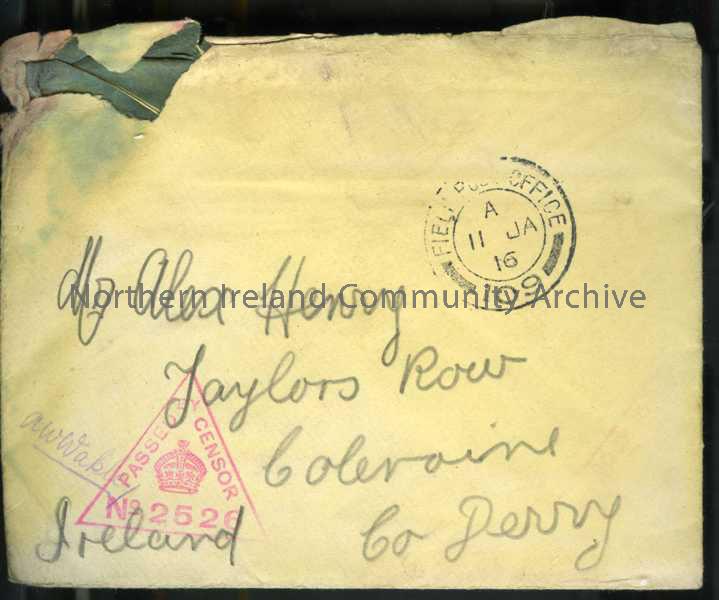 FIELD POST OFFICE
A
11 JA
16
109
Mr Alex Henry
Northern Ireland Community Archive
Taylors Row
Coleraine
Co Derry
Ireland
PASSED BY CENSOR
No 2526